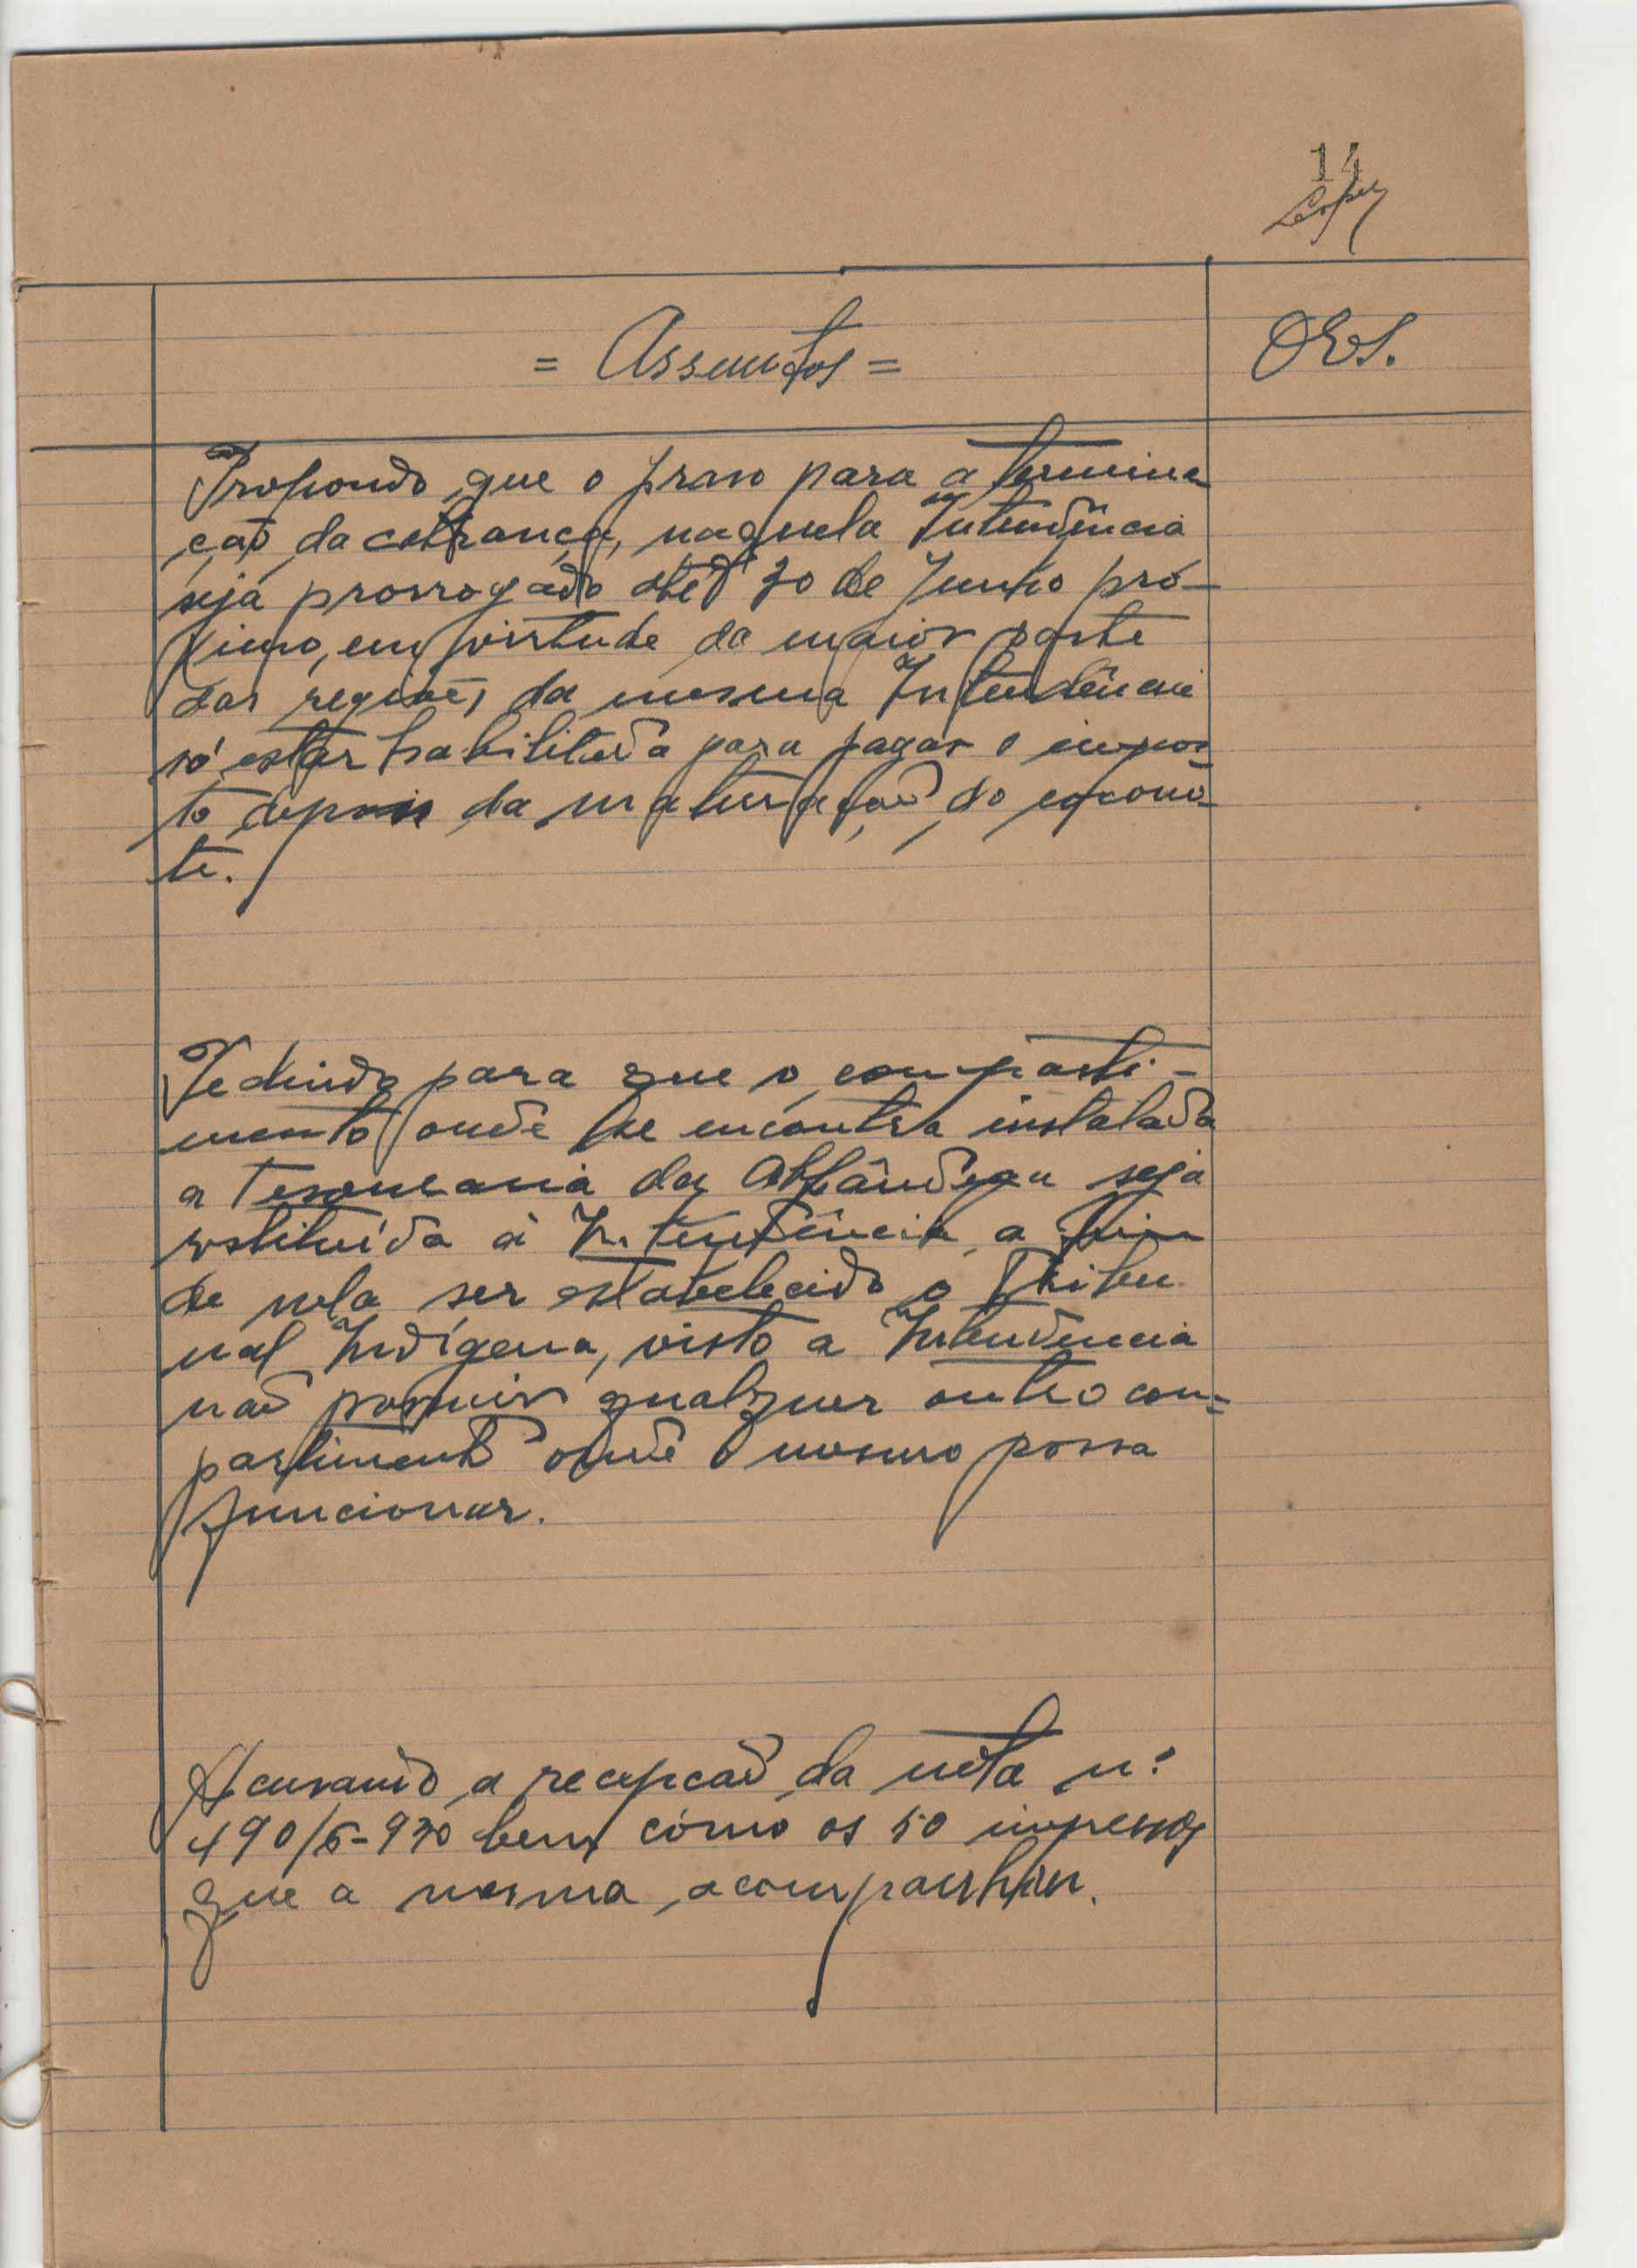 14
Lopes
= Assuntos =
OBS.
Propondo que o praso para a termina-
ção da cobrança, naquela Intendência
seja prorrogado até 30 de Junho pró-
ximo, em virtude da maior parte
das regiões da mesma Intendência
só estar habilitada para pagar o impos-
to depois da maturação do coconó-
te.
Pedindo para que o comparti-
mento onde se encontra instalada
a Tesouraria da Alfândega seja
restituída à Intendência a fim
de nela ser estabelecido o Tribu
nal Indígena, visto a Intendência
não possuir qualquer outro com=
partimento onde o mesmo possa
funcionar.
Acusando a recepção da nota n.º
490/6-930 bem como os 50 impressos
que a mesma acompanhou.